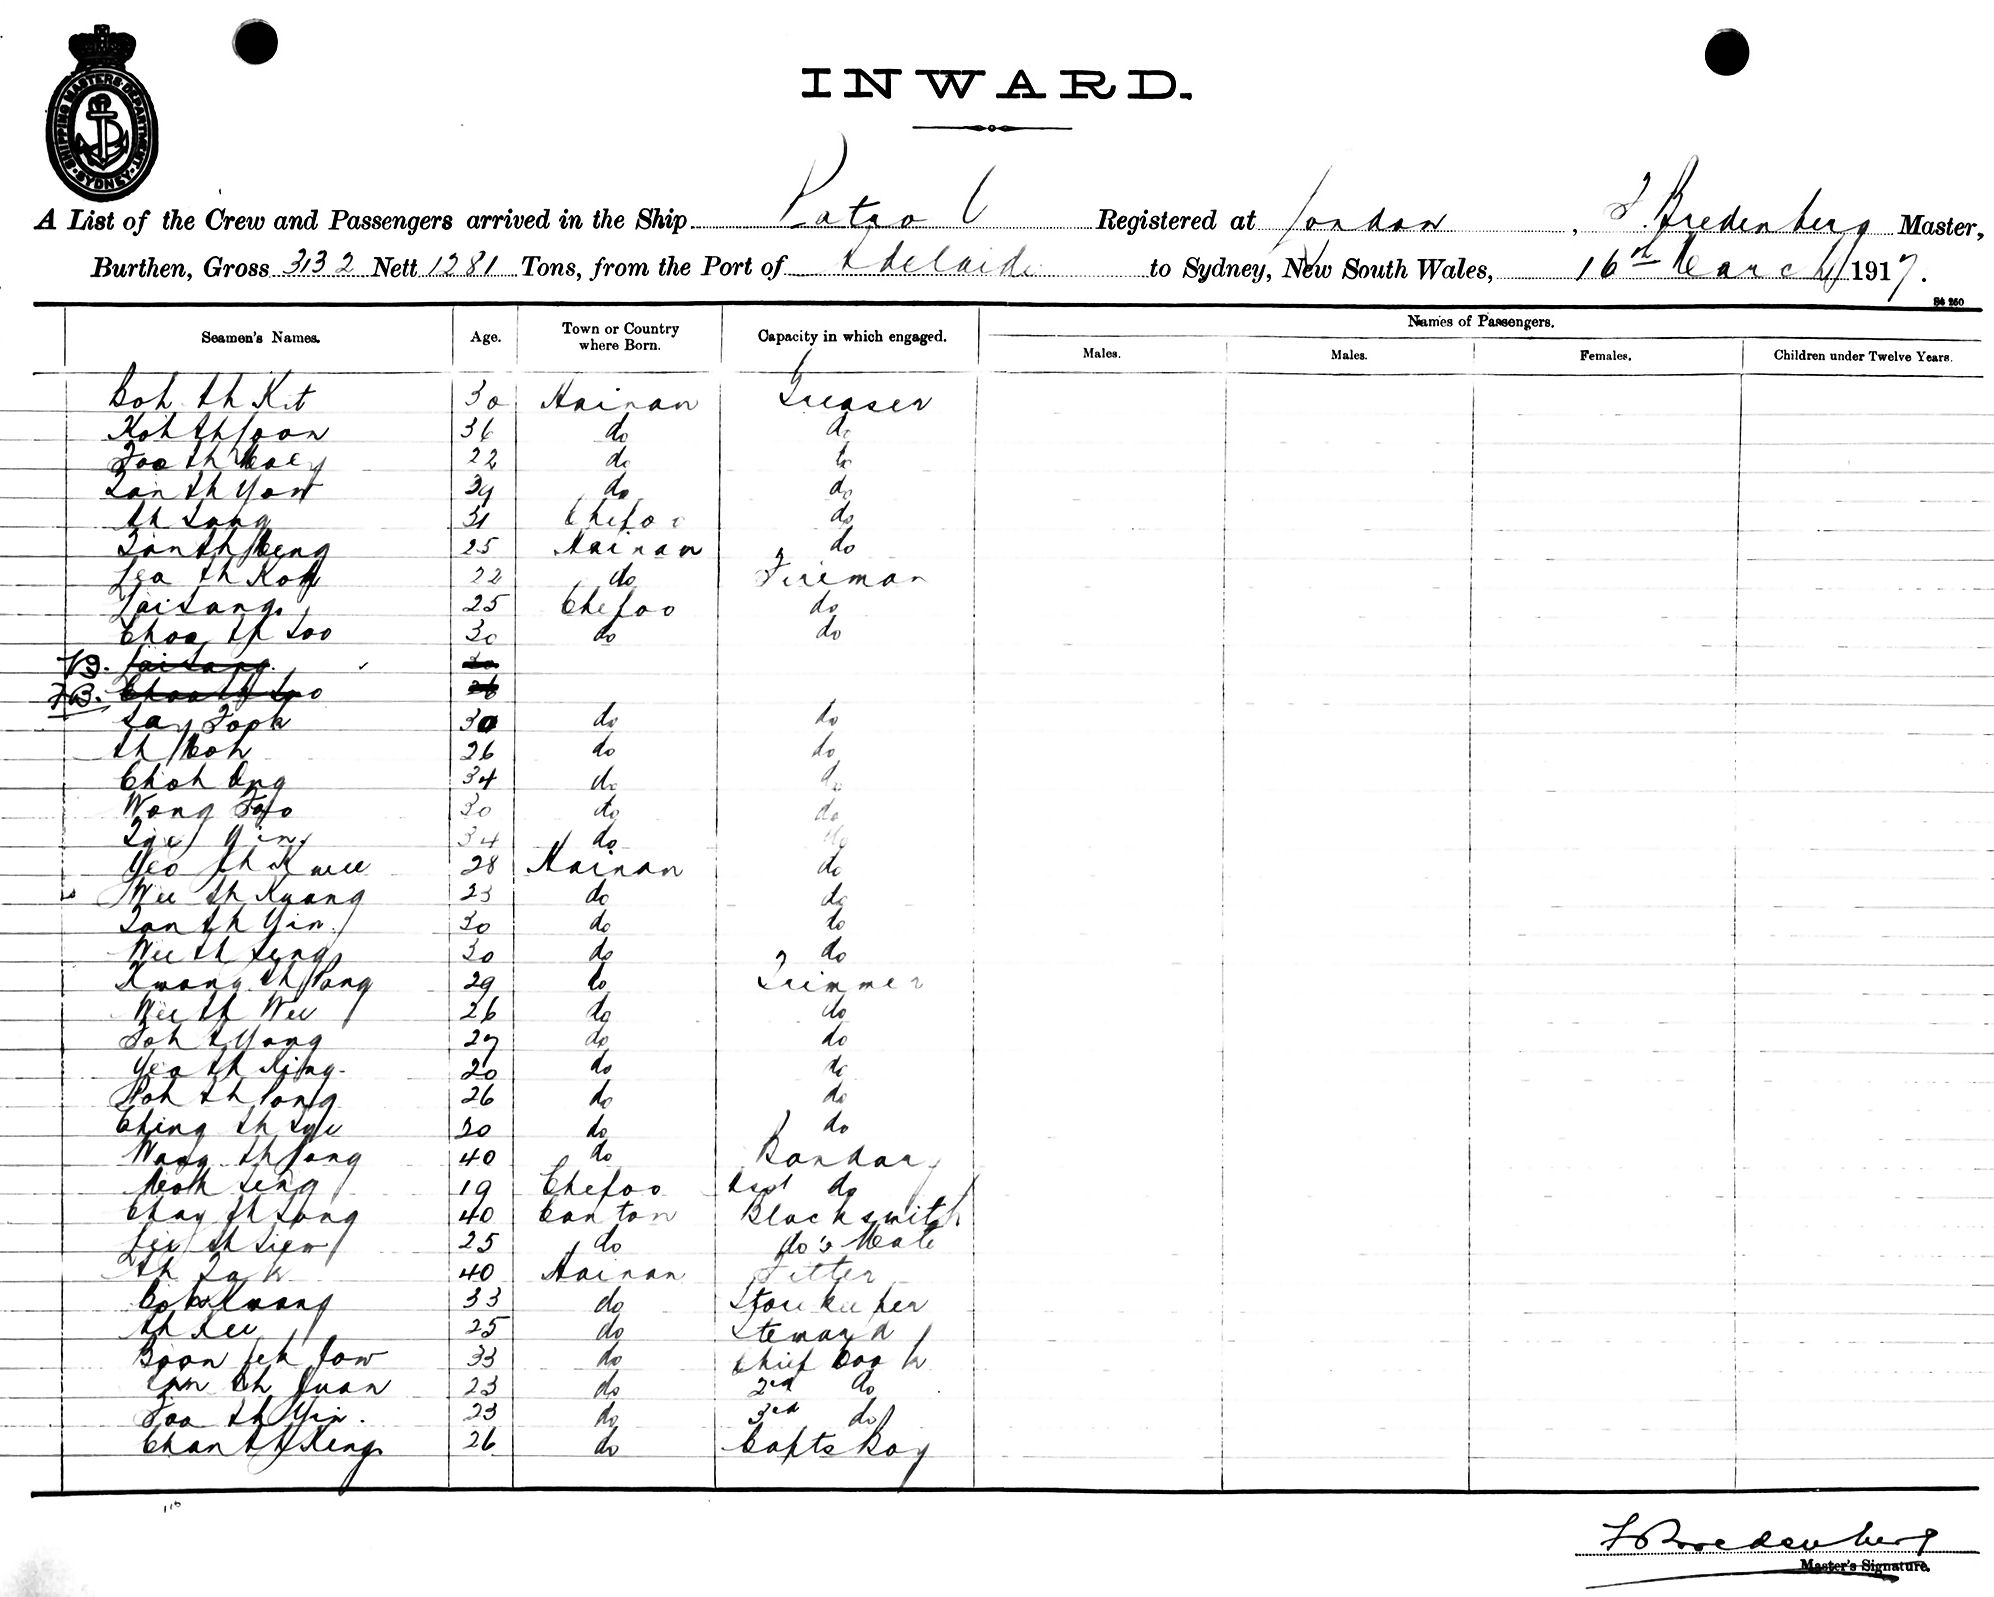 SHIPPING MASTERS DEPARTMENT SYDNEY
INWARD.
A List of the Crew and Passengers arrived in the Ship Registered at London, Bredenberg Master,
Burthen, Gross 3132 Nett 1281 Tons, from the Port of Adelaide to Sydney, New South Wales, 16th March 1917.
Seamen's Names. Age. Town or Country where Born. Capacity in which engaged. Names of Passengers.
Males. Males. Females. Children under Twelve Years.
Boh Ah Kit 30 Hainan Greaser
Koh Ah Soon 36 do do
Foo Ah 22 do do
Tan Ah Yow 39 do do
Ah Sang 31 Chefoo do
Tan Ah Meng 25 Hainan do
Ah 22 do Fireman
Lai Sang. 25 Chefoo do
Choo Ah Soo 30 do do
Lai Sang.
Choo Ah Soo 26
Say Fook 30 do do
Ah Moh 26 do do
Choh Ong 34 do do
Wong 30 do do
34 do do
Yeo Ah Kwee 28 Hainan do
Wee Ah Kuang 23 do do
Tan Ah Yin. 30 do do
Wee Ah Seng 30 do do
Kwang Ah Pang 29 do Trimmer
Wee Ah Wee 26 do do
Foh A Yang 27 do do
Yeo Ah King. 20 do do
Ah Pong 26 do do
Ching Ah 30 do do
Wong Ah 40 do Bandary
Moh Seng 19 Chefoo Asst do
Chay Ah Song 40 Canton Blacksmith
Ah Siew 25 do do's Mate
Ah Tak 40 Hainan Fitter
Kwang 33 do Storekeeper
Ah Kee 25 do Steward
Boon Jow 33 do Chief Cook
Ah Juan 23 do 2nd do
Foo Ah Yin. 23 do 3rd do
Chan Ah Keng. 26 do Capts Boy
Bredenberg
Master's Signature.